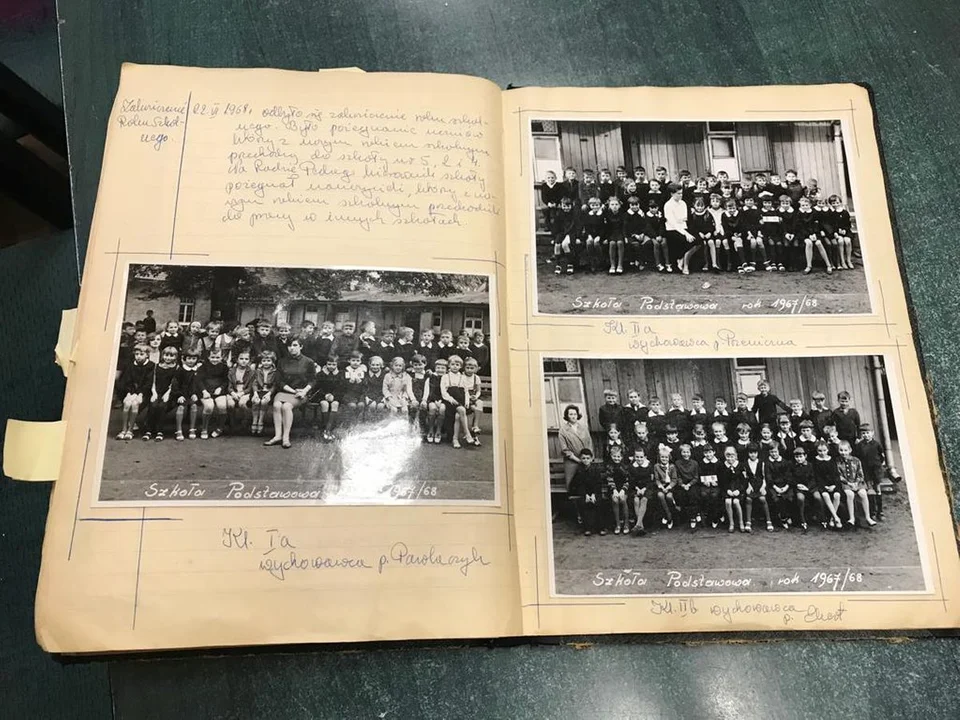 Zakończenie
Roku Szkol-
nego.
22.VI 1968r. odbyło się zakończenie roku szkol-
nego. Było pożegnanie uczniów
którzy z nowym rokiem szkolnym
przechodzą do szkoły nr 5, 2 i 4.
Na Radzie Pedag. kierownik szkoły
pożegnał nauczycieli, którzy z no-
wym rokiem szkolnym przechodzą
do pracy w innych szkołach
Szkoła Podstawowa 1967/68
Kl. Ia
wychowawca p.
Szkoła Podstawowa rok 1967/68
Kl. IIa
wychowawca p.
Szkoła Podstawowa rok 1967/68
Kl. IIb wychowawca
p.